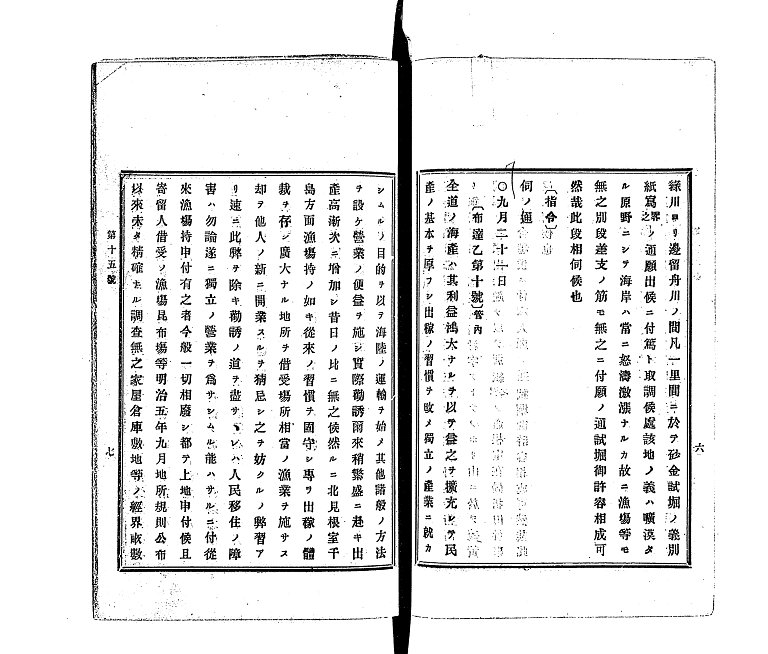 緑川ヨリ邊留舟川ノ間凡一里間ニ於テ砂金試掘ノ義別
紙寫之通願出候ニ付篤ト取調候處該地ノ義ハ曠漠タ
ル原野ニシテ海岸ハ常ニ怒濤激漲ナルカ故ニ漁場等モ
無之別段差支ノ筋モ無之ニ付願ノ通試掘御許容相成可
然哉此段相伺候也
〔指令〕
伺ノ通
〇九月二十一日
〔布達乙第十號〕管内
全道ノ海產ハ其利益鴻大ナルヲ以テ益之ヲ擴充シテ民
產ノ基本ヲ原フシ出稼ノ習慣ヲ改メ獨立ノ產業ニ就カ
六
シムルノ目的ヲ以テ海陸ノ運輸ヲ始メ其他諸般ノ方法
ヲ設ケ營業ノ便益ヲ施シ實際勸誘爾來稍繁盛ニ赴キ出
產高漸次ニ增加シ昔日ノ比ニ無之候然ルニ北見根室千
島方面漁場持ノ如キ從來ノ習慣ヲ固守シ專ヲ出稼ノ體
裁ヲ存シ廣大ナル地所ヲ借受場所相當ノ漁業ヲ施サス
却テ他人ノ新ニ開業スルヲ猜忌シ之ヲ妨クルノ弊習ア
リ速ニ此弊ヲ除キ勸誘ノ道ヲ盡サヽレハ人民移住ノ障
害ハ勿論遂ニ獨立ノ營業ヲ爲サシムル能ハサルニ付從
來漁場持申付有之者今般一切相廢シ都テ上地申付候且
寄留人借受ノ漁場昆布場等明治五年九月地所規則公布
以來未タ精確ナル調査無之家屋倉庫敷地等ノ經界畝數
第十五號
七